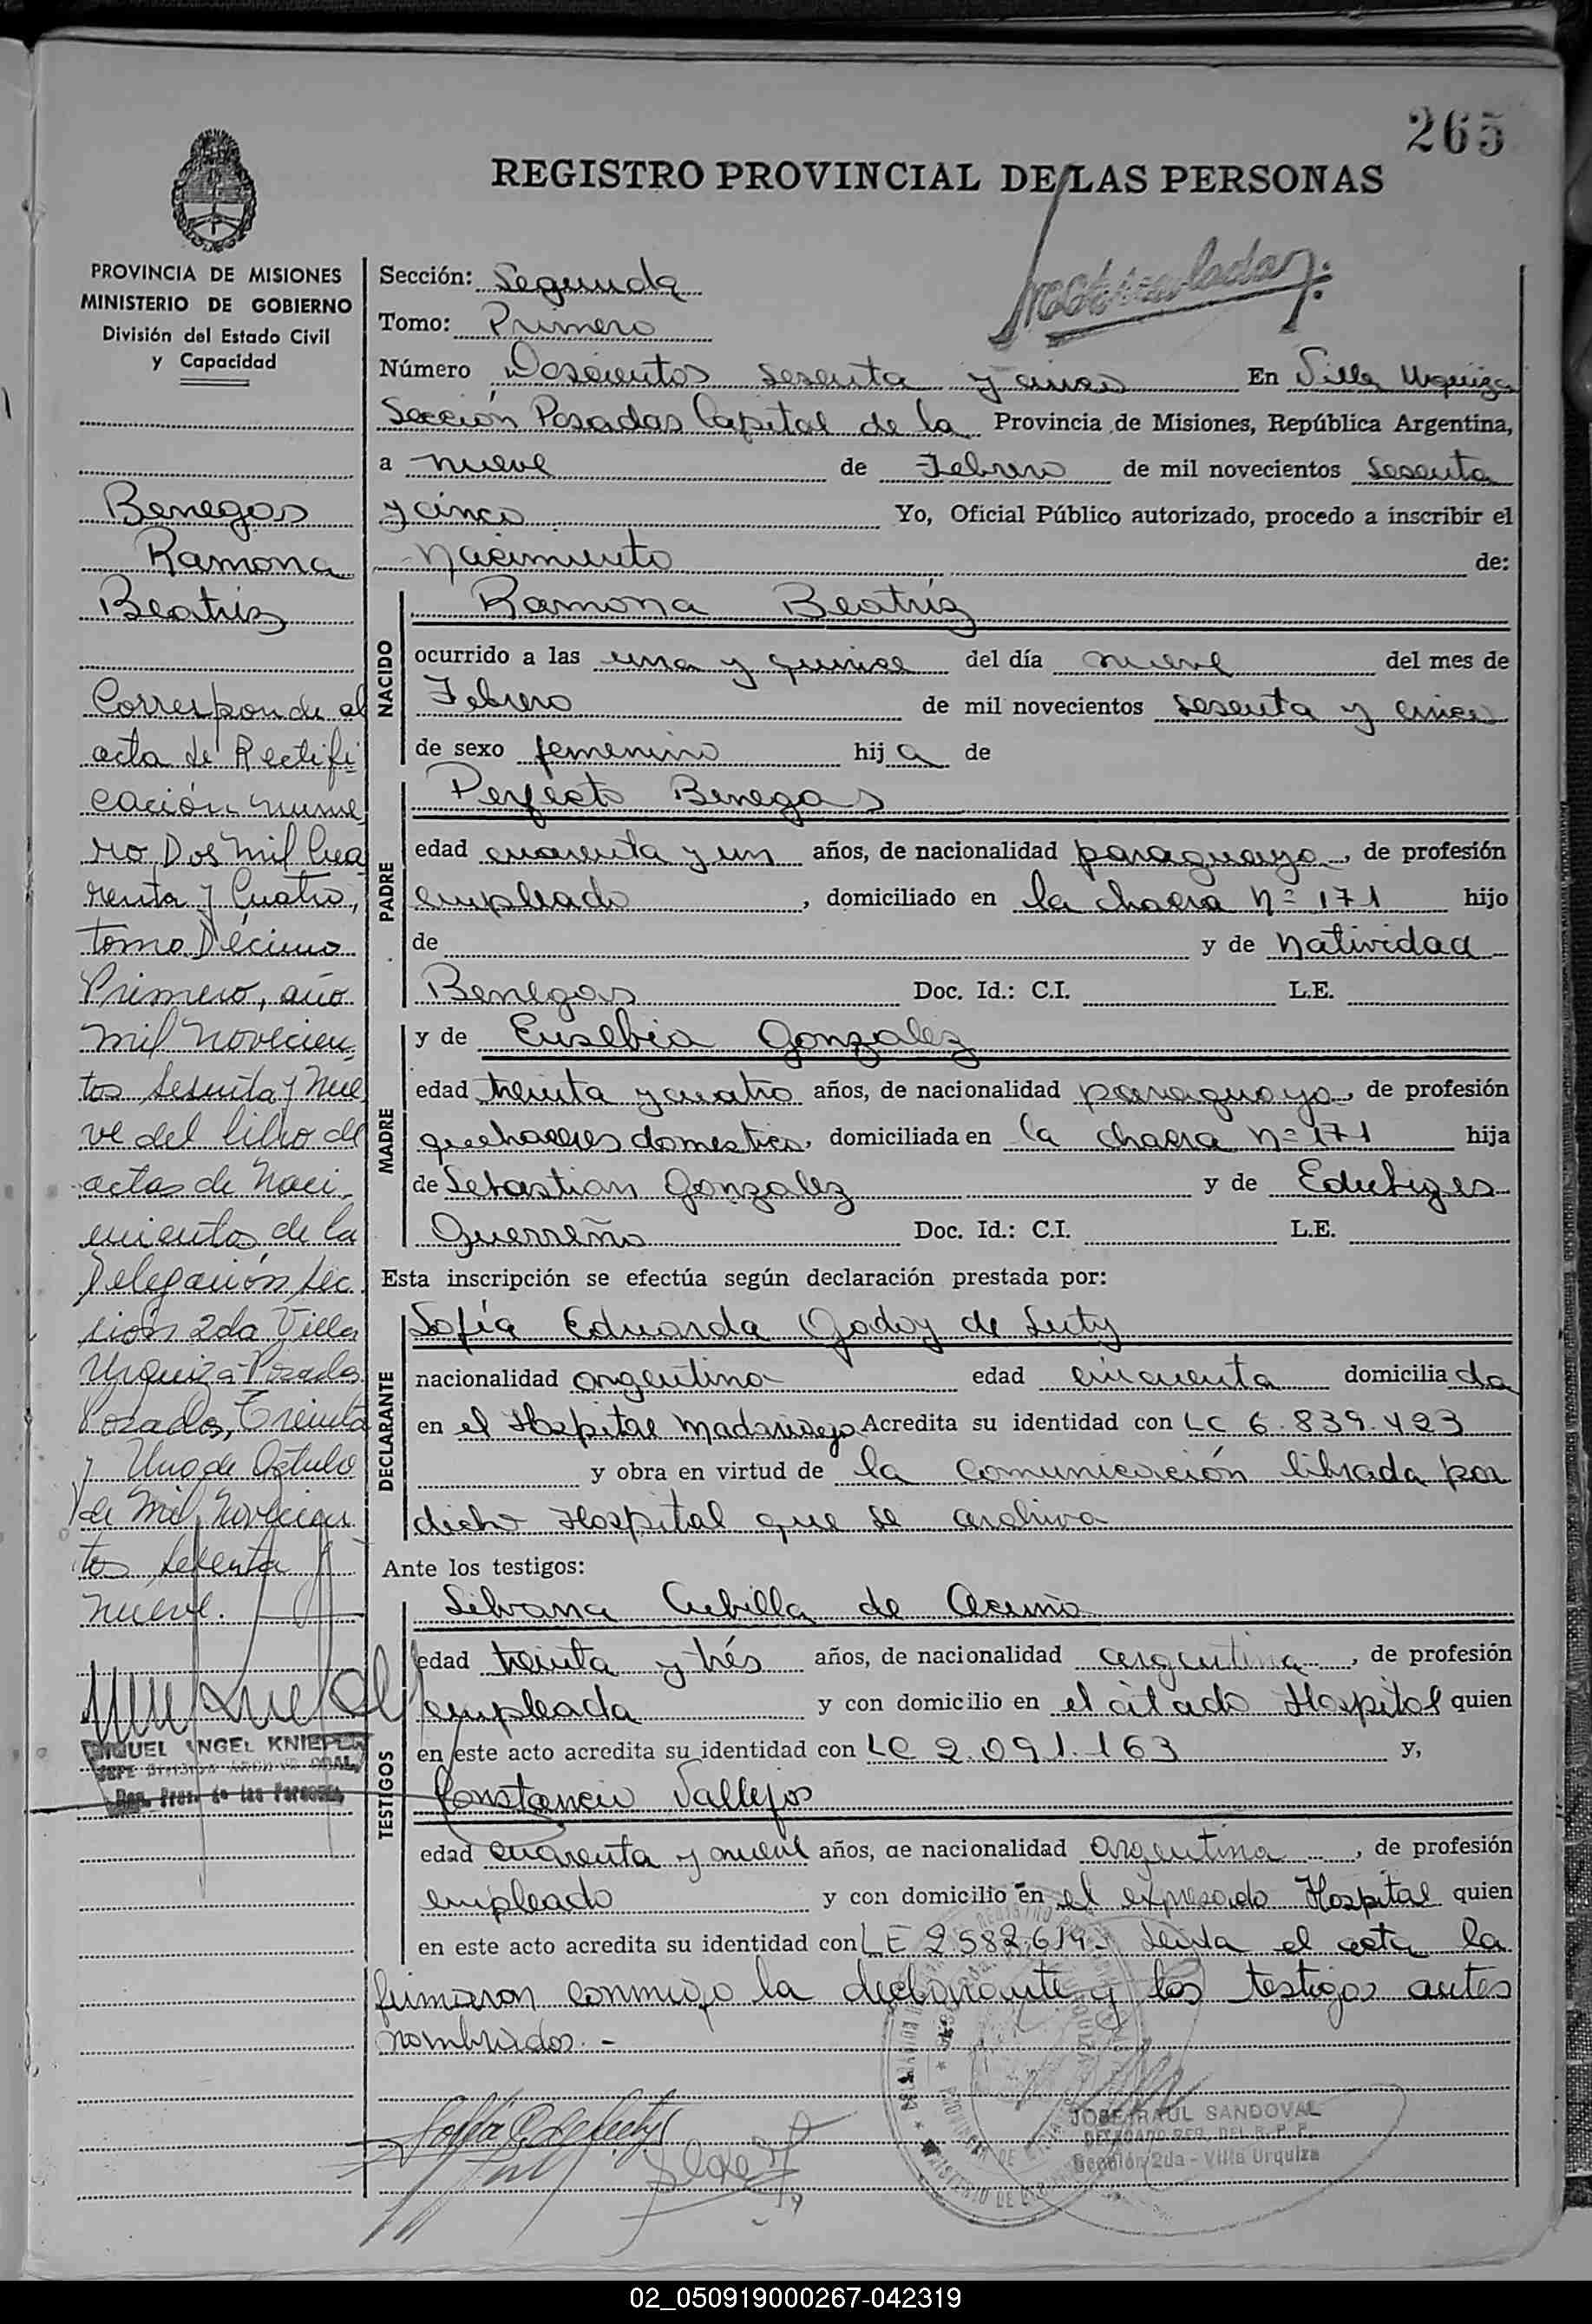 265
REGISTRO PROVINCIAL DE LAS PERSONAS
Matriculada
PROVINCIA DE MISIONES
MINISTERIO DE GOBIERNO
División del Estado Civil
y Capacidad
Benegas
Ramona
Beatriz
Corresponde al
acta de Rectifi
cación nume
ro Dos Mil Cua
renta y Cuatro,
tomo Décimo
Primero, año
mil novecien
tos sesenta y nue
ve del libro de
actas de Naci
mientos de la
Delegación Sec
ción 2da Villa
Urquiza-Posadas
Posadas, Treinta
y Uno de Octubre
de Mil Novecien
tos setenta y
nueve.
MIGUEL ANGEL KNIEPER
JEFE DIVISION ARCHIVO GRAL.
Reg. Prov. de las Personas
Sección: Segunda
Tomo: Primero
Número Doscientos sesenta y cinco En Villa Urquiza
Sección Posadas Capital de la Provincia de Misiones, República Argentina,
a nueve de Febrero de mil novecientos sesenta
y cinco Yo, Oficial Público autorizado, procedo a inscribir el
nacimiento de:
NACIDO
Ramona Beatriz
ocurrido a las una y quince del día nueve del mes de
Febrero de mil novecientos sesenta y cinco
de sexo femenino hija de
PADRE
Perfecto Benegas
edad cuarenta y un años, de nacionalidad paraguayo, de profesión
empleado, domiciliado en la chacra nº 171 hijo
de y de Natividad
Benegas Doc. Id.: C.I. L.E.
MADRE
y de Eusebia Gonzalez
edad treinta y cuatro años, de nacionalidad paraguaya, de profesión
quehaceres domestico, domiciliada en la chacra nº 171 hija
de Sebastian Gonzalez y de Edubiges
Guerreño Doc. Id.: C.I. L.E.
Esta inscripción se efectúa según declaración prestada por:
DECLARANTE
Sofía Eduarda Godoy de Luty
nacionalidad argentina edad cincuenta domiciliada
en el Hospital Madariaga Acredita su identidad con LC 6.839.423
y obra en virtud de la comunicación librada por
dicho Hospital que se archiva
Ante los testigos:
TESTIGOS
Silvana Cubilla de Acuña
edad treinta y trés años, de nacionalidad argentina, de profesión
empleada y con domicilio en el citado Hospital quien
en este acto acredita su identidad con LC 2.091.163 y,
Constancio Vallejos
edad cuarenta y nueve años, de nacionalidad argentina, de profesión
empleado y con domicilio en el expresado Hospital quien
en este acto acredita su identidad con LE 2.582.619- Leida el acta la
firmaron conmigo la declarante y los testigos antes
nombrados.-
JOSE RAUL SANDOVAL
DELEGADO REG. DEL R. P. P.
Sección 2da - Villa Urquiza
02_050919000267-042319